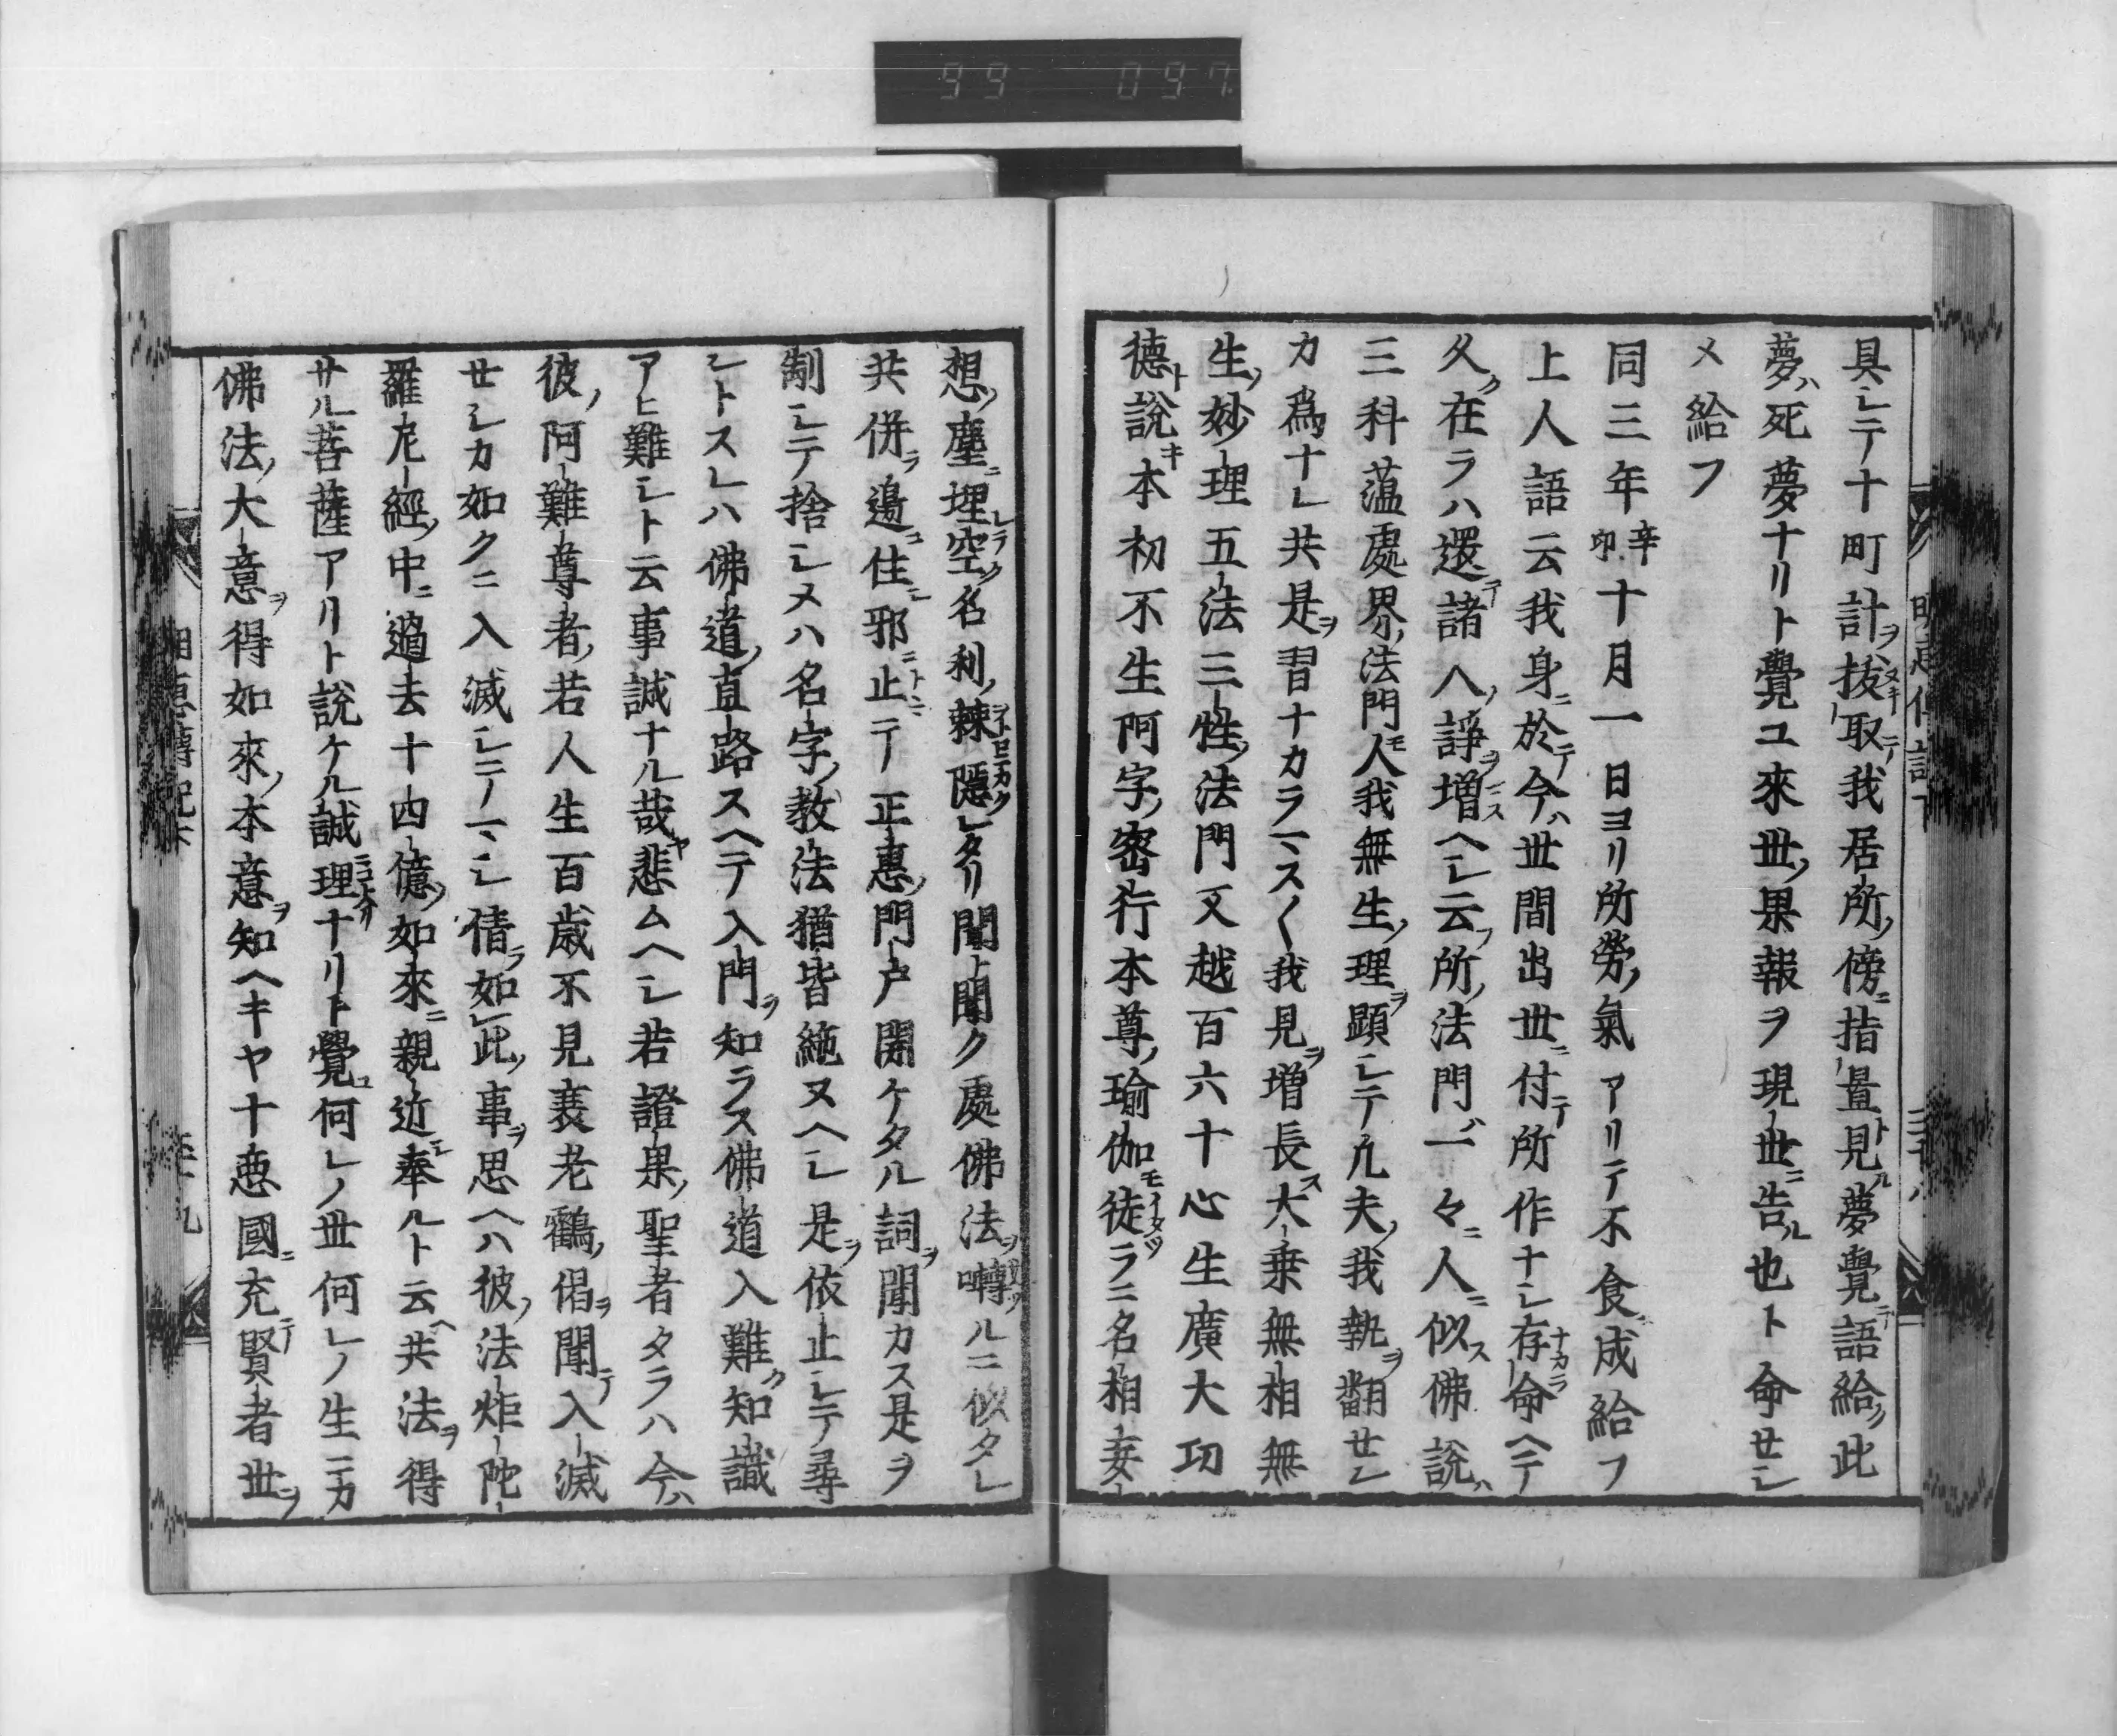 99 097
具シテ十町計ヲ拔取テ我居所ノ傍ニ指置ト見ル夢覺テ語給ノ此
夢ハ死夢ナリト覺ユ來世ノ果報ヲ現世ニ告ル也ト命セシ
メ給フ
同三年辛卯十月一日ヨリ所勞ノ氣アリテ不食ニ成給フ
上人語云我身ニ於テ今ハ世間出世ニ付テ所作ナシ存命ヘテ
久ク在ラハ還テ諸人ノ諍ヲ増ヘシ云フ所ノ法門ハ一々ニ人ニ似ス佛說ハ
三科蘊處界ノ法門モ人我無生ノ理ヲ顯シテ凢夫ノ我執ヲ翻セン
カ爲ナレ共是ヲ習ナカラマスく我見ヲ増長ス大乗無相無
生ノ妙理五法三性ノ法門又越百六十心生廣大功
德ト說キ本初不生阿字ノ密行本尊ノ瑜伽モ徒ラニ名相妄
想ノ塵ニ埋レ空ク名利ノ棘ニ隱レタリ聞ト聞ク處佛法ヲ囀ルニ似タレ
共併ラ邊ニ住シ邪ニ止マテ正惠ノ門戸開ケタル詞ヲ聞カス是ヲ
制シテ捨シメハ名字ノ教法猶皆絶ヌヘシ是ヲ依止シテ尋
レトスレハ佛道ノ直路スヘテ入門ヲ知ラス佛道入難ク知識
アヒ難シト云事誠ナル哉ヤ悲ムヘシ若證果ノ聖者タラハ今ハ
彼ノ阿難尊者ノ若人生百歳不見衰老鸖ノ偈ヲ聞テ入滅
セシカ如クニ入滅シテマシ倩ラ如レ此ノ事ヲ思ヘハ彼ノ法炬陀
羅尼經ノ中ニ過去十四億ノ如來ニ親近シ奉ルト云ヘ共法ヲ得
サル菩薩アリト說ケル誠理ナリト覺ユ何レノ世何レノ生ニカ
佛法ノ大意ヲ得如來ノ本意ヲ知ヘキヤ十惡國ニ充テ賢者世ヲ